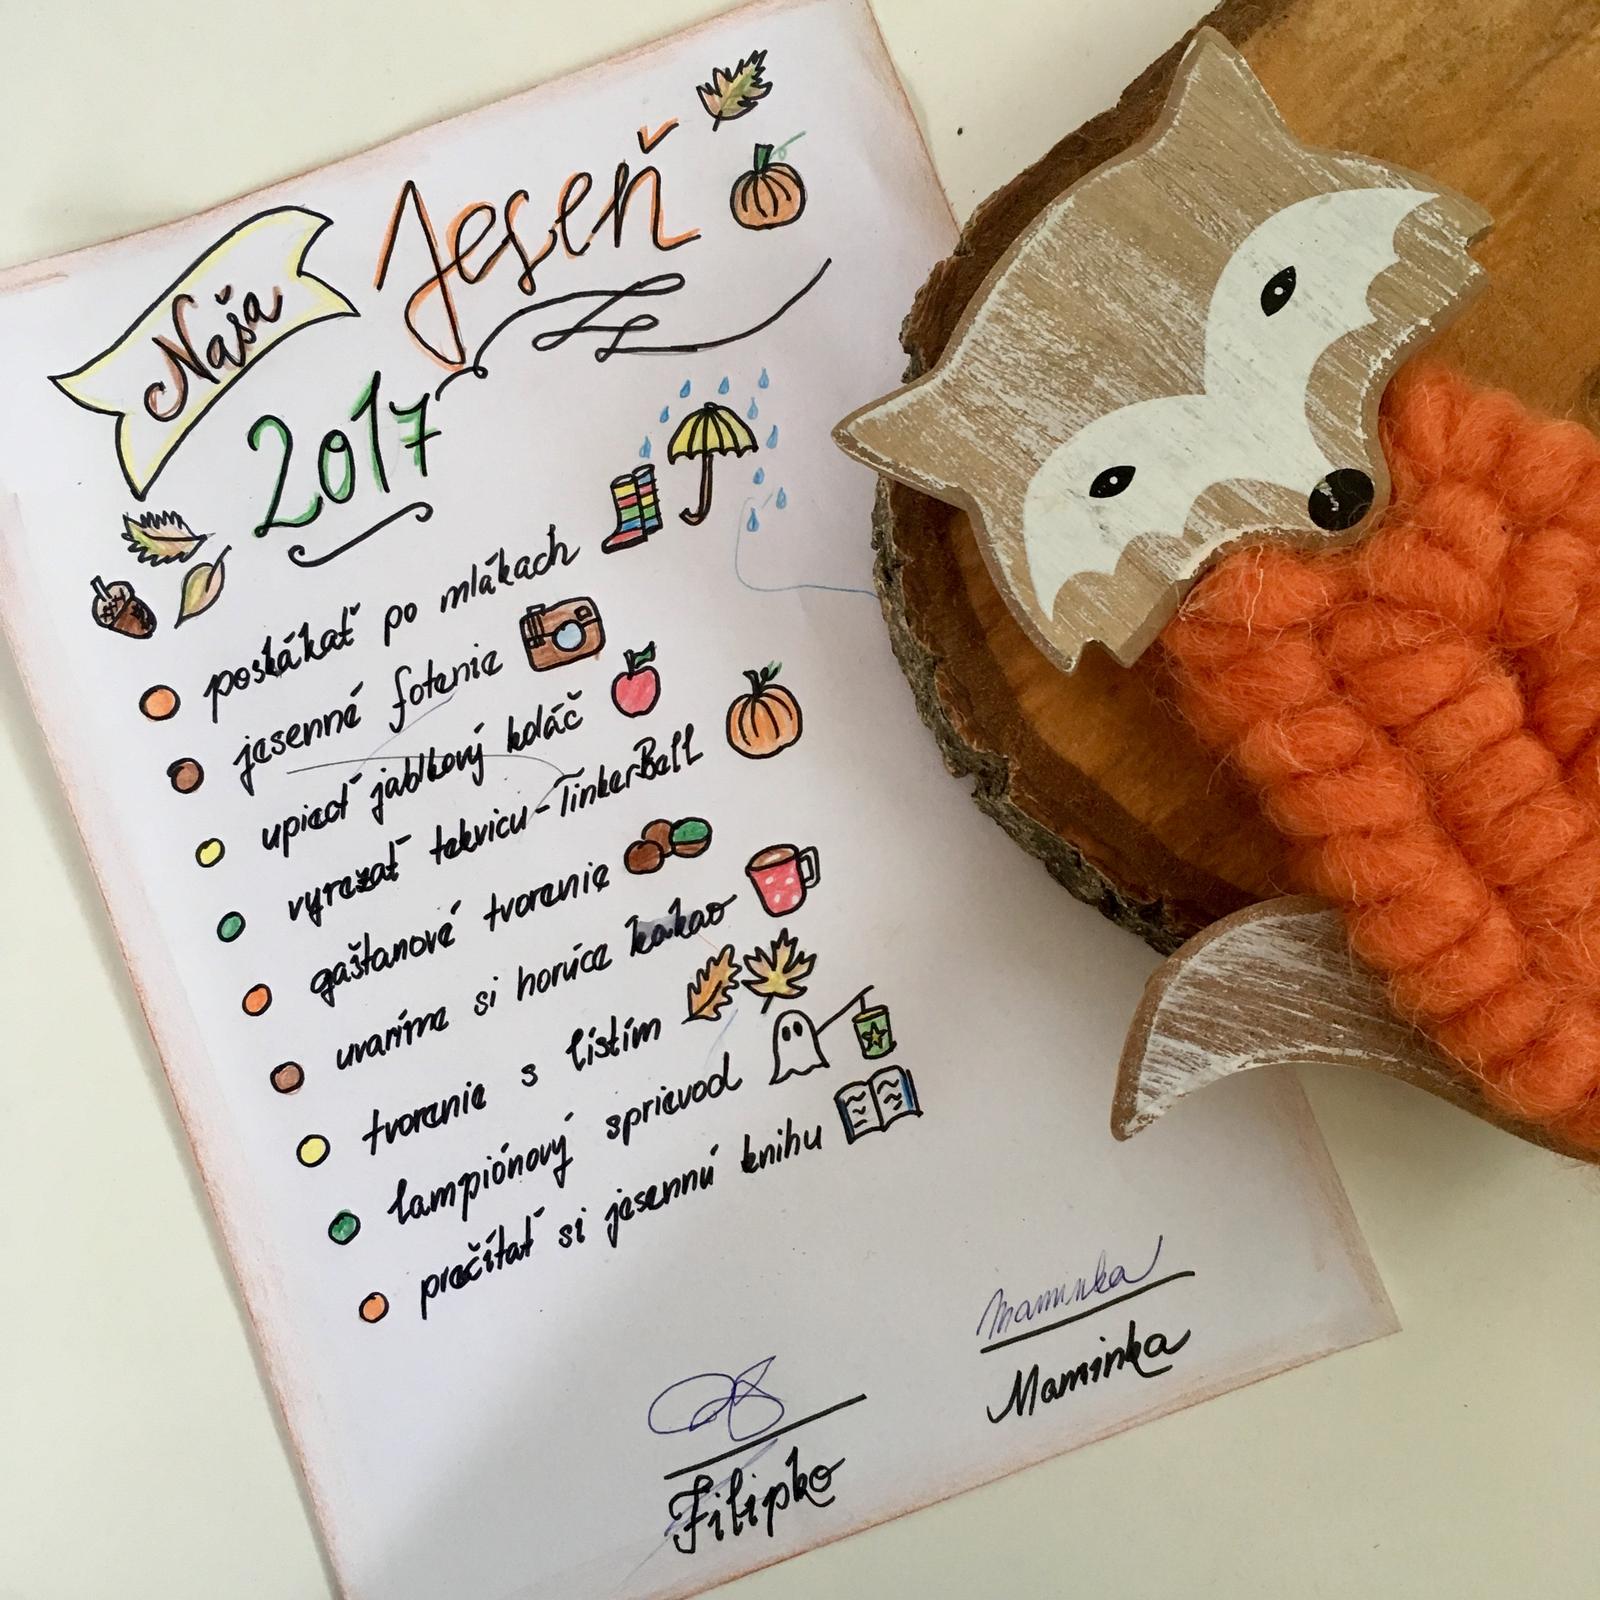 Naša
Jeseň
2017
poskákať po mlákach
jesenné fotenie
upiecť jablkový koláč
vyrezať tekvicu-TinkerBell
gaštanové tvorenie
uvaríme si horúce kakao
tvorenie s lístím
lampiónový sprievod
prečítať si jesennú knihu
Maminka
Maminka
Filipko